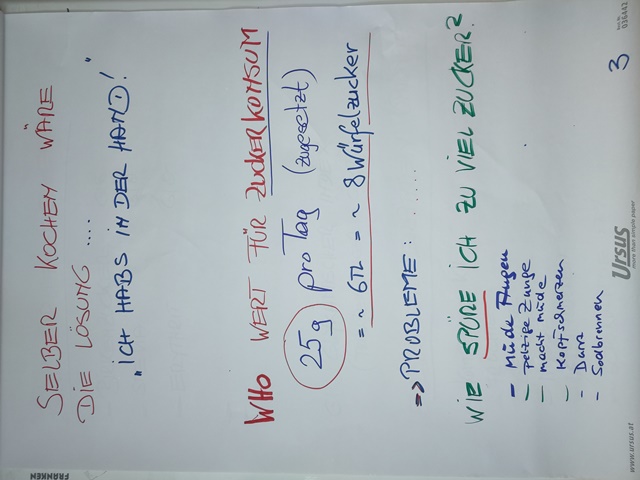 SELBER KOCHEN WÄRE
DIE LÖSUNG ....
„ICH HABS IN DER HAND!"
WHO WERT FÜR ZUCKERKONSUM
25g pro Tag (zugesetzt)
= ~ 6TL = ~ 8 Würfelzucker
=> PROBLEME: .....
WIE SPÜRE ICH ZU VIEL ZUCKER?
- Müde Augen
- pelzige Zunge
- macht müde
- Kopfschmerzen
- Durst
- Sodbrennen
3
FRANKEN
www.ursus.at
Ursus
036442